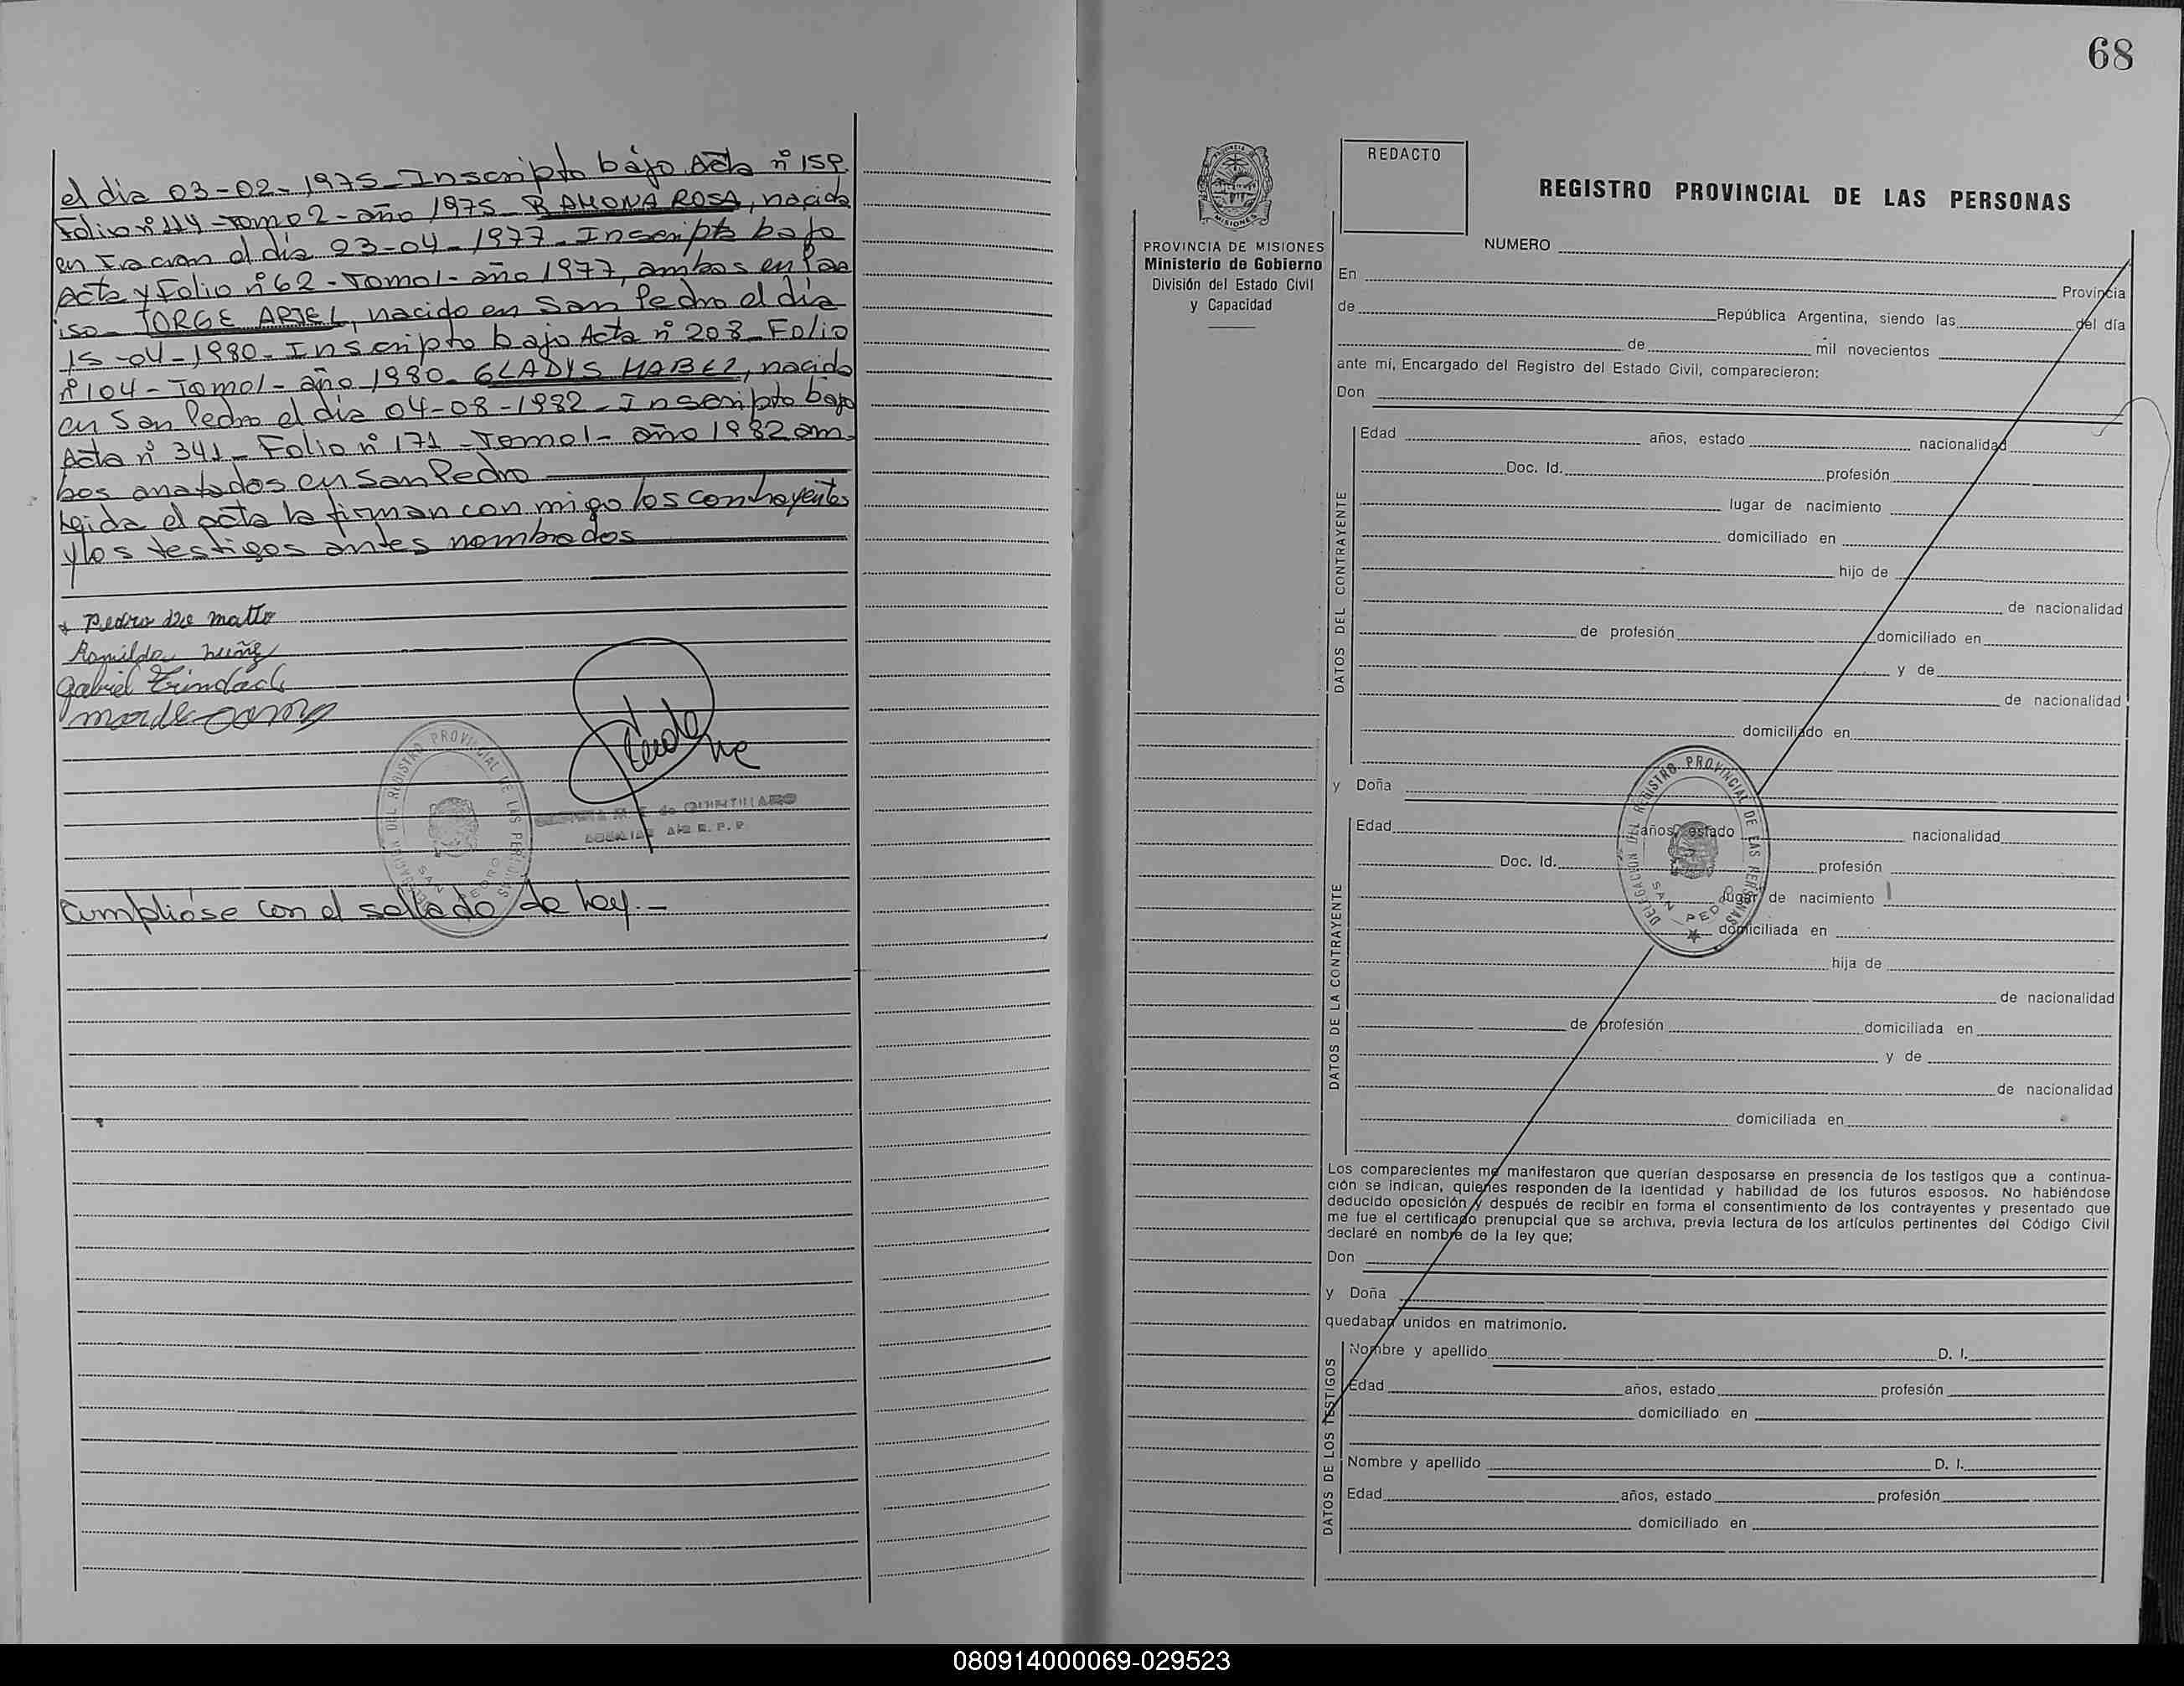 el dia 03-02-1975-Inscripto bajo Acta nº 159
Folio nº 114-Tomo 2-año 1975- RAMONA ROSA, nacida
en el día 23-04-1977-Inscripta bajo
Acta y Folio nº 62-Tomo1-año 1977, ambos en
JORGE ARIEL, nacido en San Pedro el día
15-04-1980-Inscripto bajo Acta nº 208-Folio
nº 104-Tomo1-año 1980- GLADYS MABEL, nacida
en San Pedro el día 04-08-1982-Inscripta bajo
Acta nº 341-Folio nº 171-Tomo1-año 1982 am-
bos anotados en San Pedro
Leida el acta la firman con migo los contrayentes
y los testigos antes nombrados
Pedro de matto
Romilda nuñez
gabriel Trindade
DELEGACION DEL REGISTRO PROVINCIAL DE LAS PERSONAS
SAN PEDRO
de QUINTILIANO
AUXILIAR R. P. P.
Cumplióse con el sellado de ley.-
68
PROVINCIA DE MISIONES
Ministerio de Gobierno
División del Estado Civil
y Capacidad
REDACTO
REGISTRO PROVINCIAL DE LAS PERSONAS
NUMERO
En Provincia
de República Argentina, siendo las del día
de mil novecientos
ante mí, Encargado del Registro del Estado Civil, comparecieron:
Don
DATOS DEL CONTRAYENTE
Edad años, estado nacionalidad
Doc. Id. profesión
lugar de nacimiento
domiciliado en
hijo de
de nacionalidad
de profesión domiciliado en
y de
de nacionalidad
domiciliado en
y Doña
DATOS DE LA CONTRAYENTE
Edad años, estado nacionalidad
Doc. Id. profesión
lugar de nacimiento
domiciliada en
hija de
de nacionalidad
de profesión domiciliada en
y de
de nacionalidad
domiciliada en
DELEGACION DEL REGISTRO PROVINCIAL DE LAS PERSONAS
SAN PEDRO
Los comparecientes me manifestaron que querían desposarse en presencia de los testigos que a continua-
ción se indican, quienes responden de la identidad y habilidad de los futuros esposos. No habiéndose
deducido oposición y después de recibir en forma el consentimiento de los contrayentes y presentado que
me fue el certificado prenupcial que se archiva, previa lectura de los artículos pertinentes del Código Civil
declaré en nombre de la ley que;
Don
y Doña
quedaban unidos en matrimonio.
DATOS DE LOS TESTIGOS
Nombre y apellido D. I.
Edad años, estado profesión
domiciliado en
Nombre y apellido D. I.
Edad años, estado profesión
domiciliado en
080914000069-029523